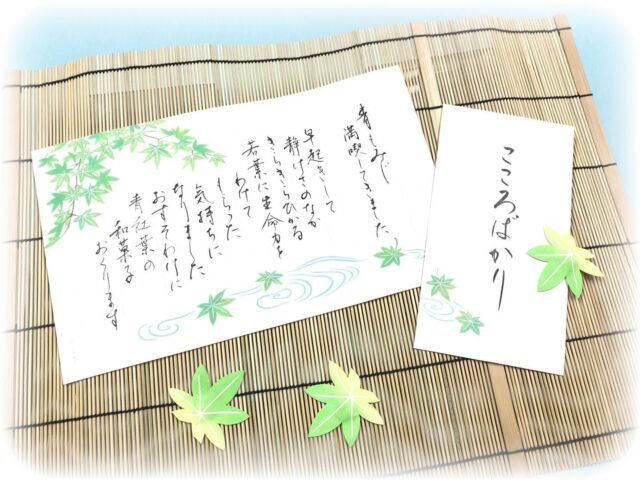 青もみじ
満喫してきました。
早起きして
静けさのなか
きらきらひかる
若葉に生命力を
わけて
もらった
気持ちに
なりました
おすそわけに
青紅葉の
和菓子
おくります
こころばかり